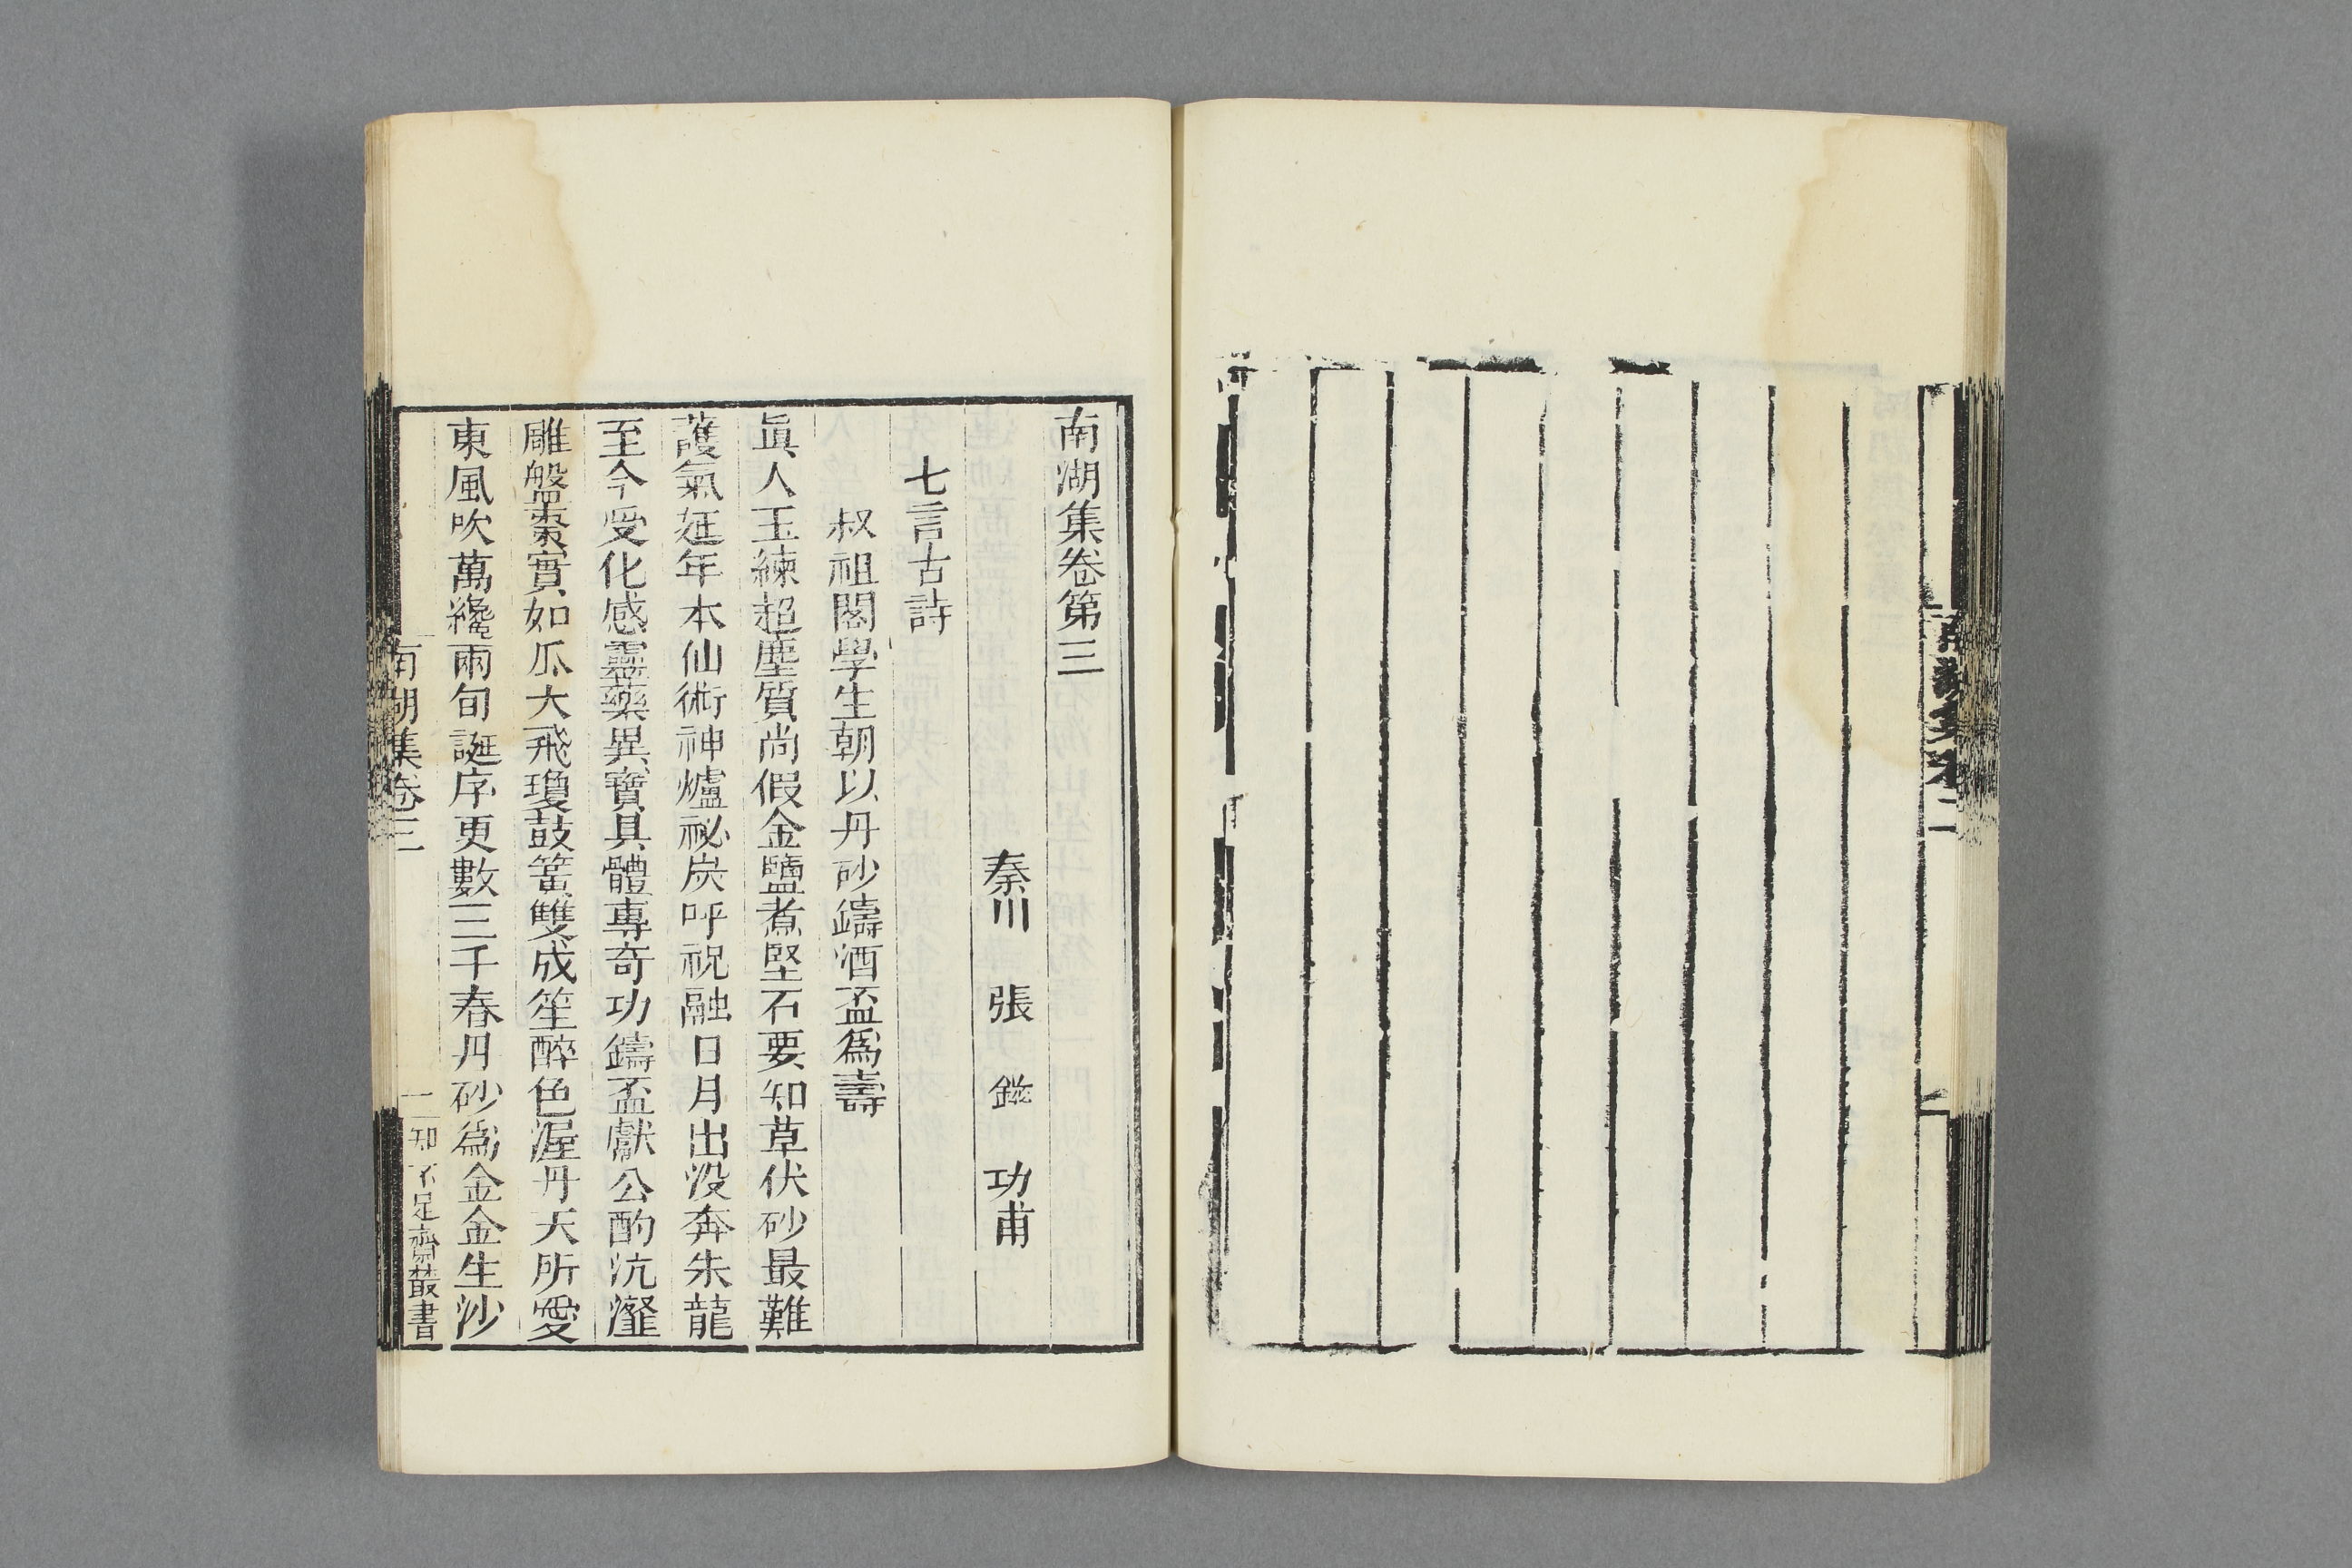 南湖集卷二
南湖集卷第三
秦川 張 鎡 功甫
七言古詩
叔祖閣學生朝以丹砂鑄酒盃爲壽
眞人玉練超塵質尚假金鹽煮堅石要知草伏砂最難
護氣延年本仙術神爐祕炭呼祝融日月出没奔朱龍
至今受化感靈藥異寶具體專奇功鑄盃獻公酌沆瀣
雕盤棗實如瓜大飛瓊鼓簧雙成笙醉色渥丹天所愛
東風吹萬纔兩旬誕序更數三千春丹砂爲金金生沙
南湖集卷三
一 知不足齋叢書